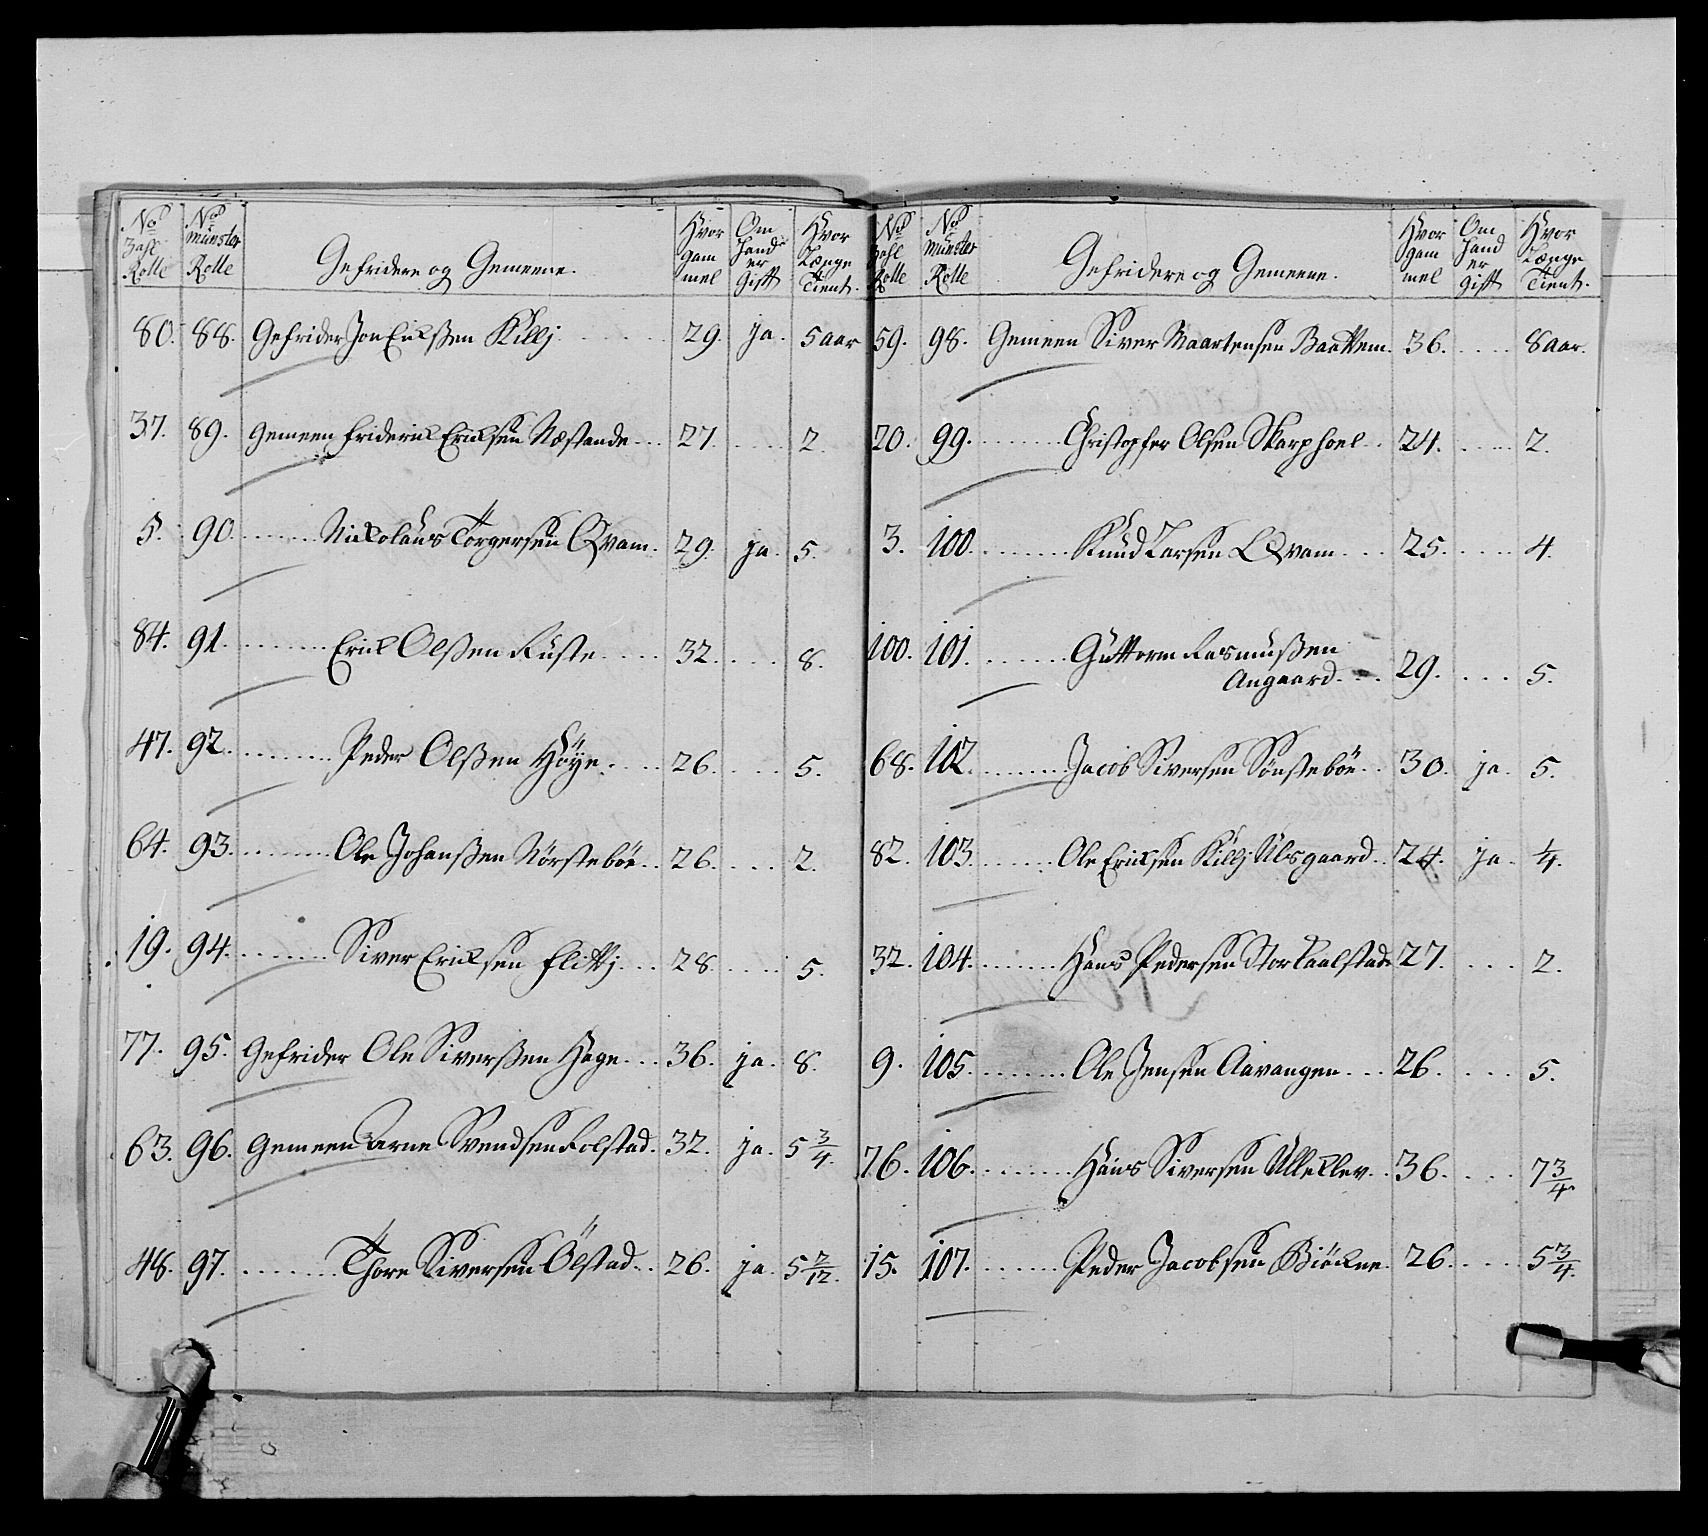 No Zahl Rolle | No Münster Rolle | Gefridere og Gemeene. | Hvor gam mel | Om hand er Gift | Hvor Længe Tient.
80. 88. Gefrider Jon Erichßen Killj 29. ja. 5 aar
37. 89. Gemeen Friderich Erichsen Næstande 27. 2.
5. 90. Nickolaus Torgersen Qvam. 29. ja. 5.
84. 91. Erich Olßen Ruste 32. 8.
47. 92. Peder Olßen Höye. 26. 5.
64. 93. Ole Johanßen Nörsteböe 26. 2.
19. 94. Siver Erichsen 28. 5.
77. 95. Gefrider Ole Siverßen Hage 36. ja. 8.
63. 96. Gemeen Arne Svendsen Folstad. 32. ja. 5 3/4.
48. 97. Thore Siversen Ölstad 26. ja. 5 2/12.
No Zahl Rolle | No Münster Rolle | Gefridere og Gemeene. | Hvor gam mel | Om hand er gift | Hvor Længe Tient.
59. 98. Gemeen Siver Maartensen 36. 8 aar.
20. 99. Christopfer Olsen Skarphoel 24. 2.
3. 100. Knud Larsen Qvam 25. 4.
100. 101. Guttorm Rasmußen
Angaard. 29. 5.
68. 102. Jacob Siversen Sönsteböe 30. ja. 5.
82. 103. Ole Erichsen Killj Ulsgaard 24. ja. 1/4.
32. 104. Hans Pedersen 27. 2.
9. 105. Ole Jensen Aavangen 26. 5.
76. 106. Hans Siversen Ulleklev 36. 7 3/4.
15. 107. Peder Jacobsen Biöckne. 26. 5 3/4.